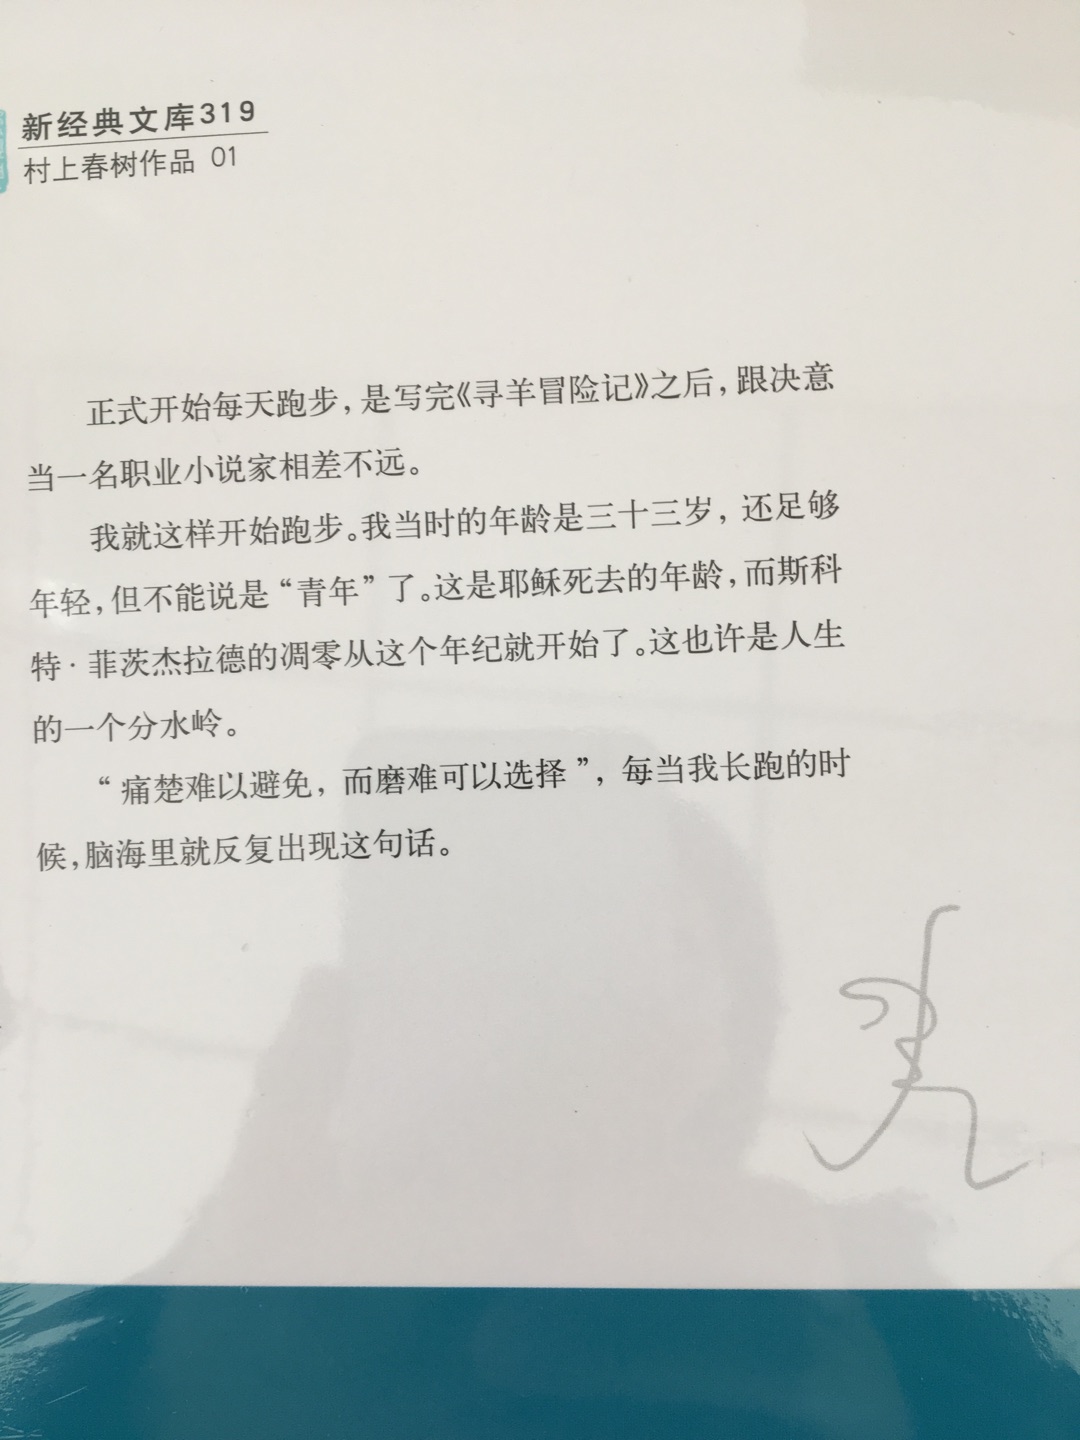 新经典文库319
村上春树作品 01
正式开始每天跑步，是写完《寻羊冒险记》之后，跟决意
当一名职业小说家相差不远。
我就这样开始跑步。我当时的年龄是三十三岁，还足够
年轻，但不能说是“青年”了。这是耶稣死去的年龄，而斯科
特·菲茨杰拉德的凋零从这个年纪就开始了。这也许是人生
的一个分水岭。
“痛楚难以避免，而磨难可以选择”，每当我长跑的时
候，脑海里就反复出现这句话。